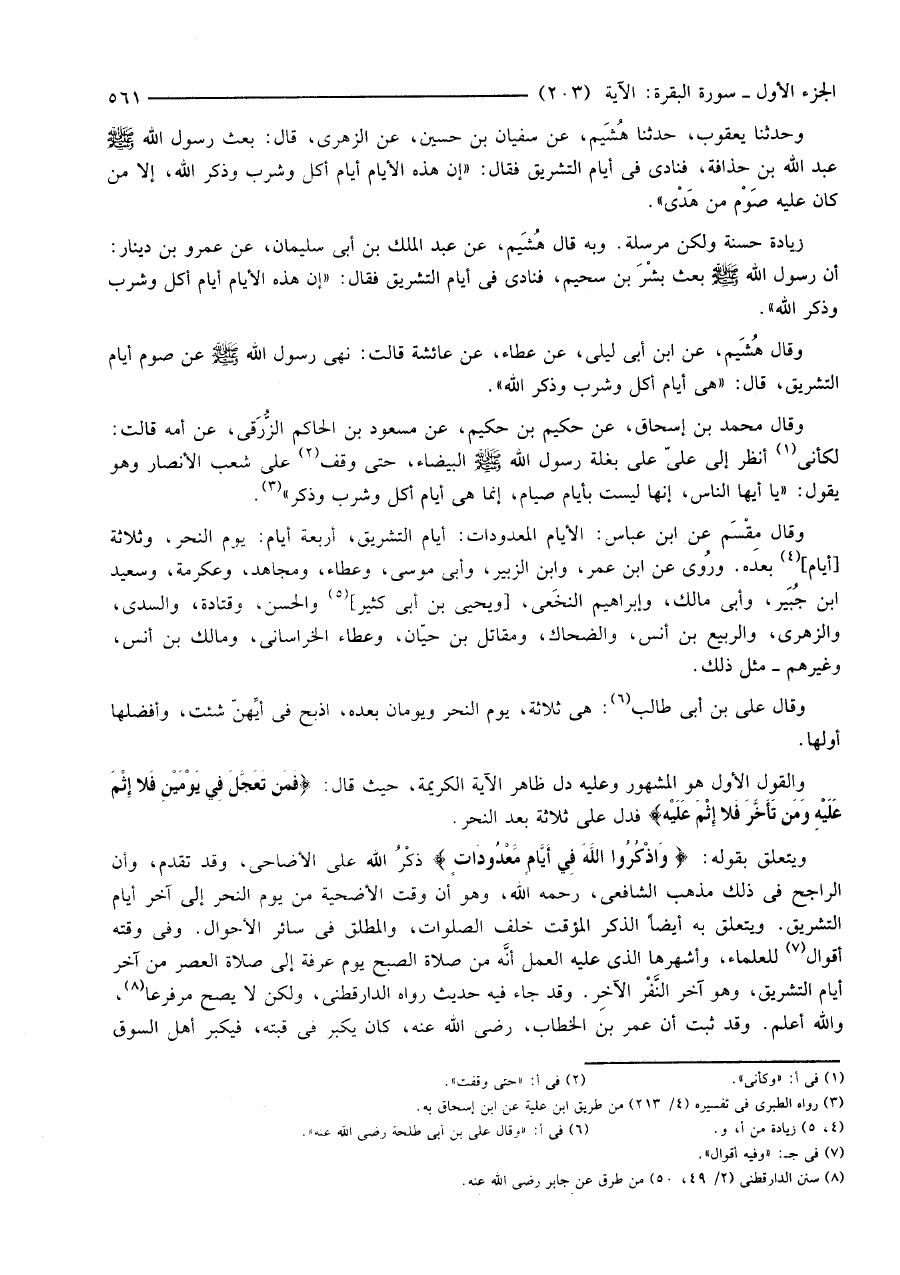 الجزء الأول ـ سورة البقرة: الآية (٢٠٣) ٥٦١
وحدثنا يعقوب، حدثنا هُشَيم، عن سفيان بن حسين، عن الزهرى، قال: بعث رسول الله ﷺ
عبد الله بن حذافة، فنادى فى أيام التشريق فقال: «إن هذه الأيام أيام أكل وشرب وذكر الله، إلا من
كان عليه صَوْم من هَدْى».
زيادة حسنة ولكن مرسلة. وبه قال هُشَيم، عن عبد الملك بن أبى سليمان، عن عمرو بن دينار:
أن رسول الله ﷺ بعث بشْرَ بن سحيم، فنادى فى أيام التشريق فقال: «إن هذه الأيام أيام أكل وشرب
وذكر الله».
وقال هُشَيم، عن ابن أبى ليلى، عن عطاء، عن عائشة قالت: نهى رسول الله ﷺ عن صوم أيام
التشريق، قال: «هى أيام أكل وشرب وذكر الله».
وقال محمد بن إسحاق، عن حكيم بن حكيم، عن مسعود بن الحاكم الزُّرَقى، عن أمه قالت:
لكأنى(١) أنظر إلى علىّ على بغلة رسول الله ﷺ البيضاء، حتى وقف(٢) على شعب الأنصار وهو
يقول: «يا أيها الناس، إنها ليست بأيام صيام، إنما هى أيام أكل وشرب وذكر»(٣).
وقال مِقْسَم عن ابن عباس: الأيام المعدودات: أيام التشريق، أربعة أيام: يوم النحر، وثلاثة
[أيام](٤) بعدَه. ورُوى عن ابن عمر، وابن الزبير، وأبى موسى، وعطاء، ومجاهد، وعكرمة، وسعيد
ابن جُبَير، وأبى مالك، وإبراهيم النخَعى، [ويحيى بن أبى كثير](٥) والحسن، وقتادة، والسدى،
والزهرى، والربيع بن أنس، والضحاك، ومقاتل بن حيّان، وعطاء الخراسانى، ومالك بن أنس،
وغيرهم ـ مثل ذلك.
وقال على بن أبى طالب(٦): هى ثلاثة، يوم النحر ويومان بعده، اذبح فى أيِّهنّ شئت، وأفضلها
أولها.
والقول الأول هو المشهور وعليه دل ظاهر الآية الكريمة، حيث قال: ﴿فَمَن تَعَجَّلَ فِي يَوْمَيْنِ فَلا إِثْمَ
عَلَيْهِ وَمَن تَأَخَّرَ فَلا إِثْمَ عَلَيْهِ﴾ فدل على ثلاثة بعد النحر.
ويتعلق بقوله: ﴿ وَاذْكُرُوا اللَّهَ فِي أَيَّامٍ مَّعْدُودَاتٍ ﴾ ذكْرُ الله على الأضاحى، وقد تقدم، وأن
الراجح فى ذلك مذهب الشافعى، رحمه الله، وهو أن وقت الأضحية من يوم النحر إلى آخر أيام
التشريق. ويتعلق به أيضاً الذكر المؤقت خلف الصلوات، والمطلق فى سائر الأحوال. وفى وقته
أقوال(٧) للعلماء، وأشهرها الذى عليه العمل أنَّه من صلاة الصبح يوم عرفة إلى صلاة العصر من آخر
أيام التشريق، وهو آخر النَّفْر الآخِر. وقد جاء فيه حديث رواه الدارقطنى، ولكن لا يصح مرفرعا(٨)،
والله أعلم. وقد ثبت أن عمر بن الخطاب، رضى الله عنه، كان يكبر فى قبته، فيكبر أهل السوق
(١) فى أ: «وكأنى». (٢) فى أ: «حتى وقفت».
(٣) رواه الطبرى فى تفسيره (٤/ ٢١٣) من طريق ابن علية عن ابن إسحاق به.
(٤، ٥) زيادة من أ، و. (٦) فى أ: «وقال على بن أبى طلحة رضى الله عنه».
(٧) فى جـ: «وفيه أقوال».
(٨) سنن الدارقطنى (٢/ ٤٩، ٥٠) من طرق عن جابر رضى الله عنه.